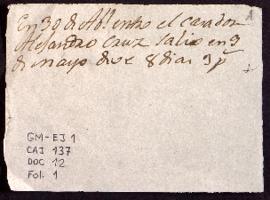 En 30 de Ab.l entro el cavador
Alejandro Cruz salio en 3
de mayo dio 8 dias 3 p
GM-EJ 1
CAJ 137
DOC 12
Fol. 1